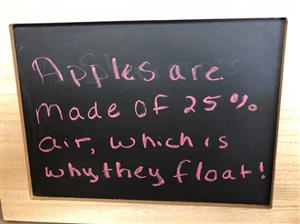 Apples are
made of 25%
air, which is
why they float!